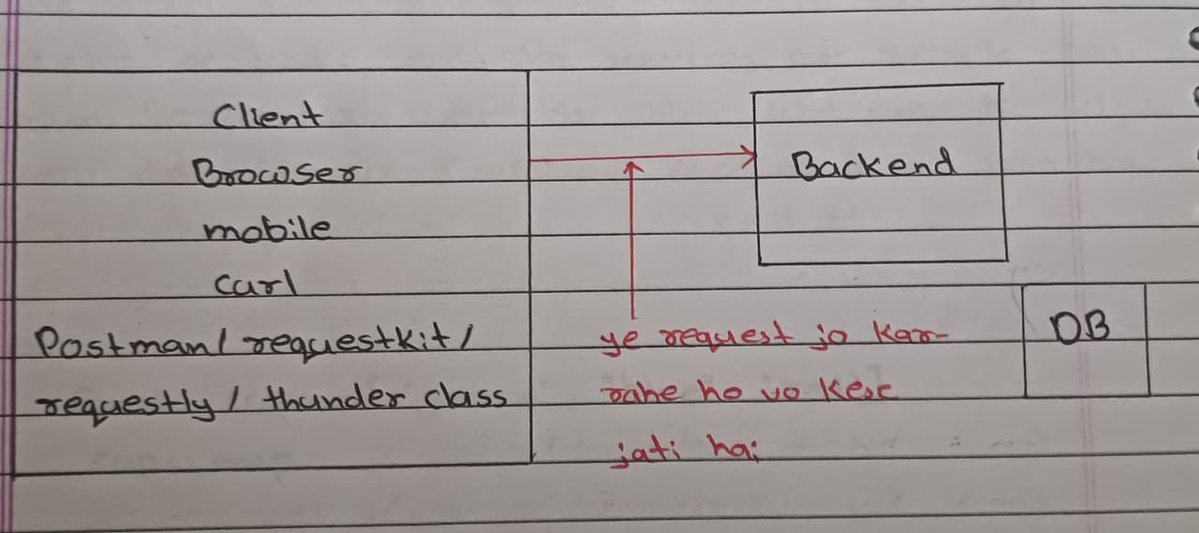 Client
Browser
mobile
Curl
Postman / requestkit /
requestly / thunder class
Backend
DB
ye request jo kar
rahe ho vo kese
jati hai